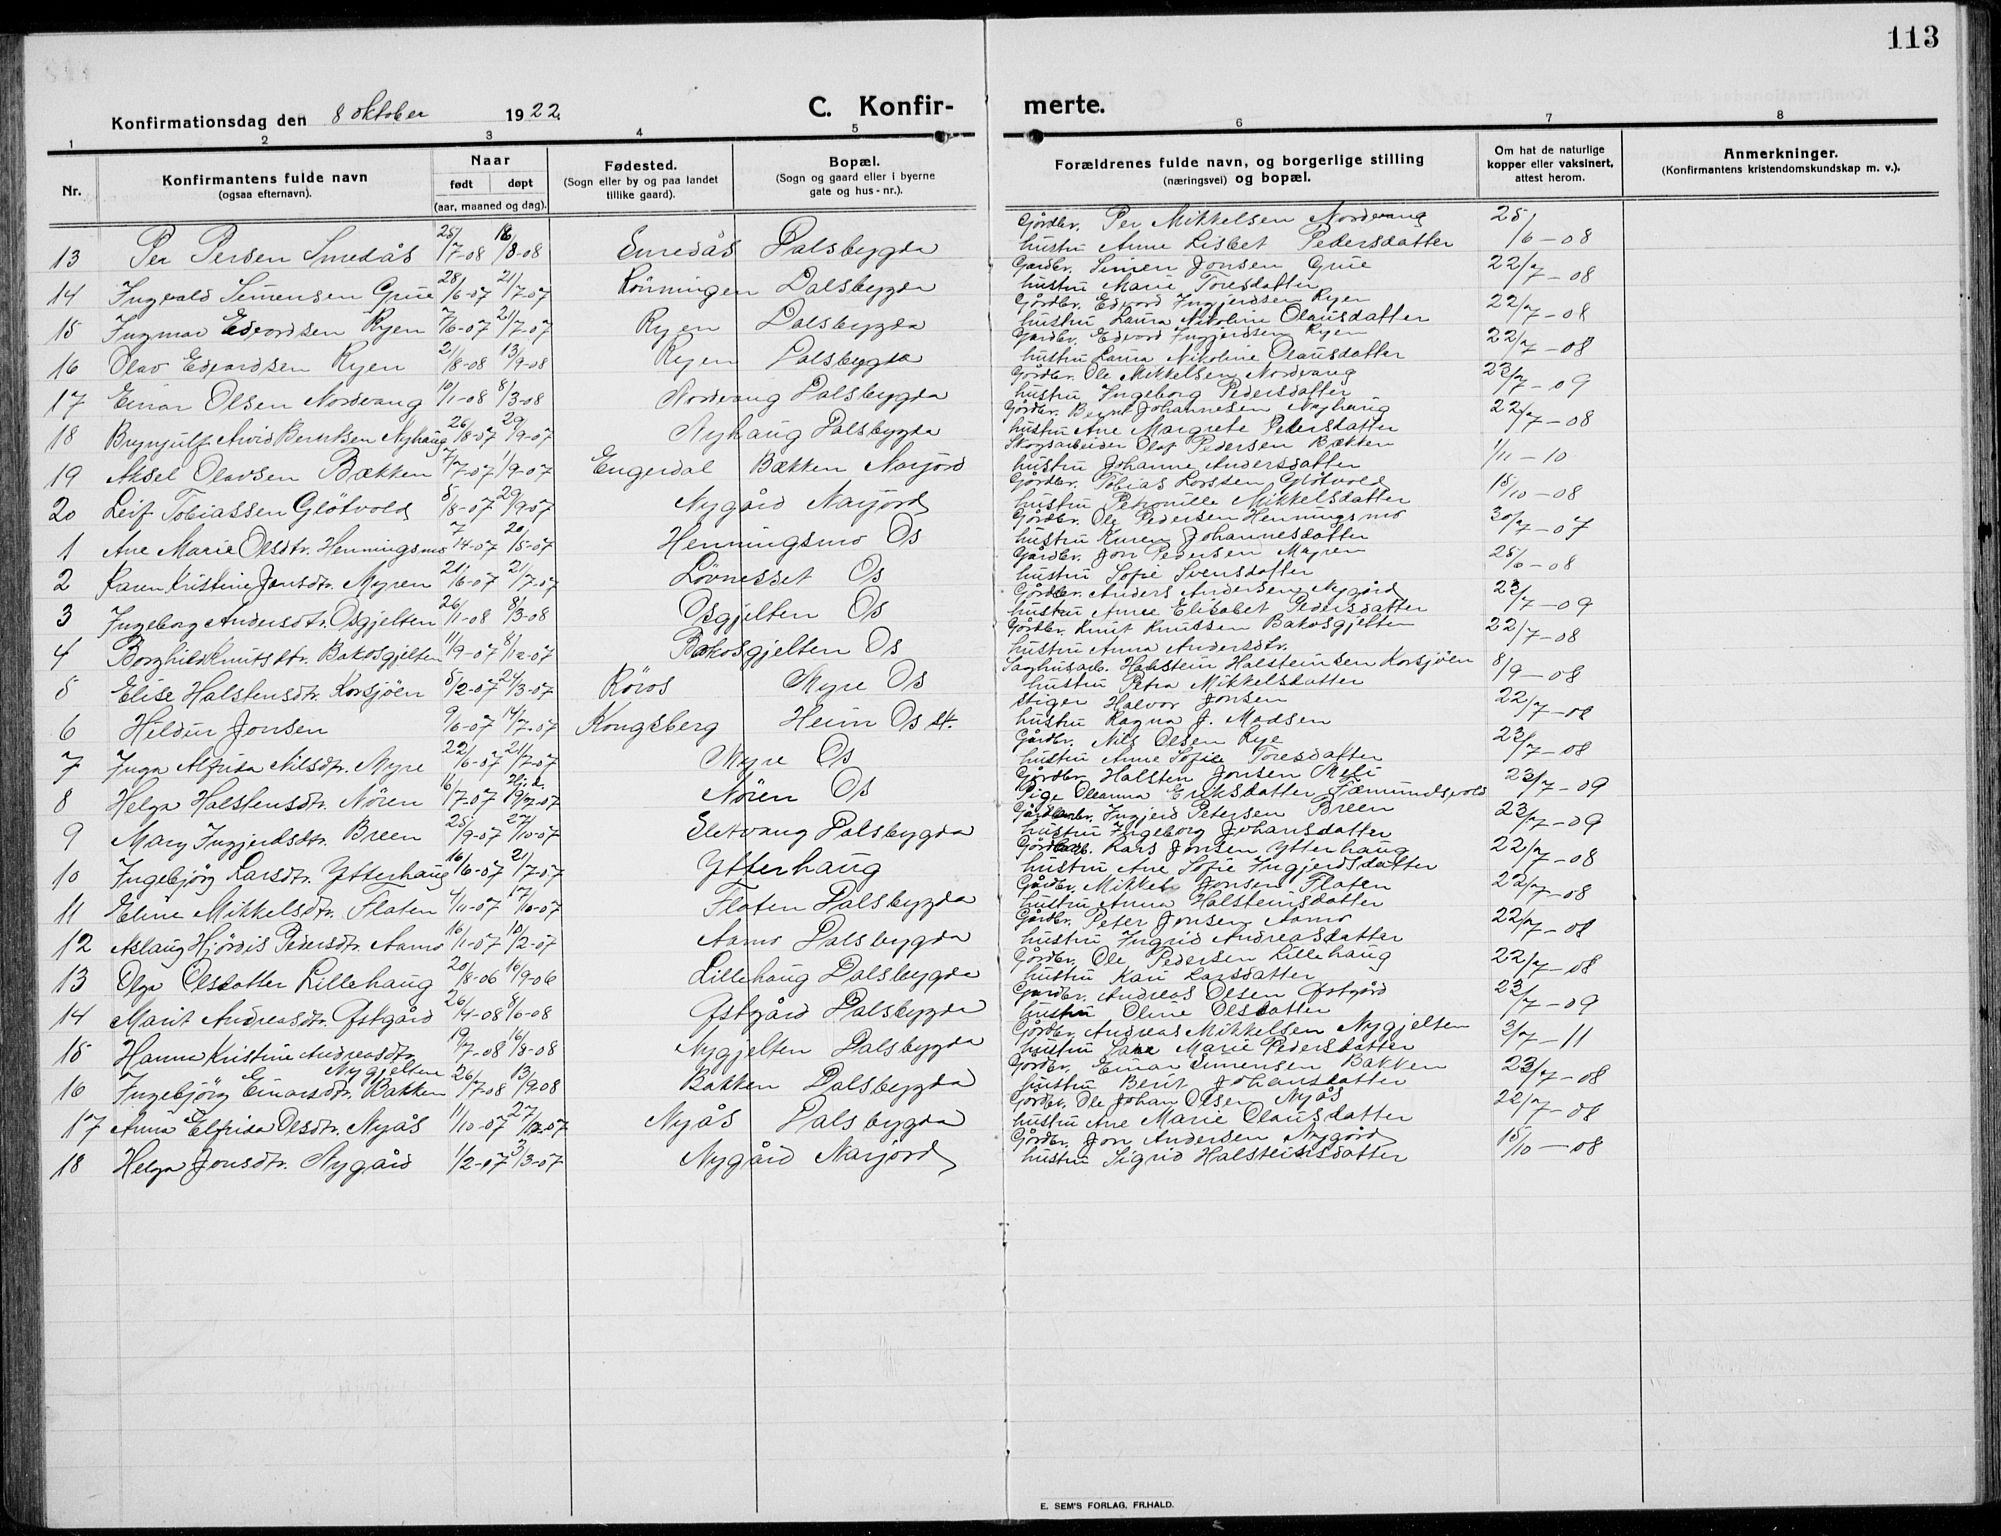 113
Konfirmationsdag den 8 oktober 1922.
C. Konfirmerte.
1 2 3 4 5 6 7 8
Nr. Konfirmantens fulde navn (ogsaa efternavn). Naar født døpt (aar, maaned og dag). Fødested. (Sogn eller by og paa landet tillike gaard). Bopæl. (Sogn og gaard eller i byerne gate og hus-nr.). Forældrenes fulde navn, og borgerlige stilling (næringsvei) og bopæl. Om hat de naturlige kopper eller vaksinert, attest herom. Anmerkninger. (Konfirmantens kristendomskundskap m. v.).
13 Per Persen Smedås 25/7-08 16/8-08 Smedås Dalsbygda Gårdbr. Per Mikkelsen Nordvang 25/6-08
hustru Anne Lisbet Pedersdatter
14 Ingvald Simensen Grue 28/6-07 21/7-07 Rönningen Dalsbygda Gardbr. Simen Jonsen Grue 22/7-08
hustru Marie Toresdatter
15 Ingmar Edvardsen Ryen 7/6-07 21/7-07 Ryen Dalsbygda Gårdbr. Edvard Ingjerdsen Ryen 22/7-08
hustru Laura Nikoline Olausdatter
16 Olav Edvardsen Ryen 2/8-08 13/9-08 Ryen Dalsbygda Gårdbr. Edvard Ingjerdsen Ryen 22/7-08
hustru Laura Nikoline Olausdatter
17 Einar Olsen Nordvang 10/1-08 8/3-08 Nordvang Dalsbygda Gårdbr. Ole Mikkelsen Nordvang 23/7-09
hustru Ingeborg Pedersdatter
18 Brynjulf Arvid Berntsen Nyhaug 26/8-07 29/9-07 Nyhaug Dalsbygda Gårdbr. Bernt Johannesen Nyhaug 22/7-08
hustru Ane Margrete Pedersdatter
19 Aksel Olavsen Bækken 7/7-07 1/9-07 Engerdal Bækken Narjord Skogsarbeider Olaf Pedersen Bækken 1/11-10
hustru Johanne Andersdatter
20 Leif Tobiassen Glötvold 5/8-07 29/9-07 Nygård Narjord Gårdbr. Tobias Larssen Glötvold 15/10-08
hustru Petronille Mikkelsdatter
1 Ane Marie Olsdtr. Henningsmo 7/4-07 20/5-07 Henningsmo Os Gårdbr. Ole Pedersen Henningsmo 30/7-07
hustru Karen Johannesdatter
2 Karen Kristine Jonsdtr. Myren 21/6-07 21/7-07 Lövnesset Os Gårdbr. Jon Pedersen Myren 25/6-08
hustru Sofie Svensdatter
3 Ingeborg Andersdt. Osgjelten 26/1-08 8/3-08 Osgjelten Os Gårdbr. Anders Andersen Nygård 23/7-09
hustru Anne Elisabet Pedersdatter
4 Borghild Knutsdtr. Bakosgjelten 11/9-07 8/12-07 Bakosgjelten Os Gårdbr. Knut Knutsen Bakosgjelten 22/7-08
hustru Anna Andersdtr.
5 Elise Halstensdtr. Korsjöen 5/2-07 24/3-07 Röros Myre Os Saghusarb. Halstein Halsteinsen Korsjöen 8/9-08
hustru Petra Mikkelsdatter
6 Hildur Jonsen 9/6-07 14/7-07 Kongsberg Heim Os st. Stiger Halvor Jonsen 22/7-08
hustru Ragna J. Madsen
7 Inga Alfrida Nilsdtr. Myre 22/6-07 21/7-07 Myre Os Gårdbr. Nils Olsen Rye 23/7-08
hustru Anne Sofie Toresdatter
8 Helga Halstensdtr. Nören 6/7-07 Hj.d. 19/7-07 Nören Os Gårdbr. Halsten Jonsen Meli 23/7-09
Pige Oleanna Eriksdatter Fæmundsvold
9 Mary Ingjerdsdtr. Breen 25/9-07 27/10-07 Sletvang Dalsbygda Gårdbr. Ingjerd Petersen Breen 23/7-09
hustru Ingeborg Johansdatter
10 Ingebjörg Larsdtr. Ytterhaug 16/6-07 21/7-07 Ytterhaug Gårdbr. Lars Jonsen Ytterhaug 22/7-08
hustru Ane Sofie Ingjerdsdatter
11 Eline Mikkelsdtr. Floten 4/11-07 17/10-07 Floten Dalsbygda Gårdbr. Mikkel Jonsen Floten 22/7-08
hustru Anna Halsteinsdatter
12 Aslaug Hjördis Pedersdtr. Aamo 16/11-07 10/2-07 Aamo Dalsbygda Gårdbr. Peter Jonsen Aamo 22/7-08
hustru Ingrid Andreasdatter
13 Olga Olsdatter Lillehaug 20/8-06 16/9-06 Lillehaug Dalsbygda Gårdbr. Ole Pedersen Lillehaug 22/7-08
hustru Kari Larsdatter
14 Marit Andreasdtr. Østgård 26/4-08 8/6-08 Østgård Dalsbygda Gardbr. Andreas Olsen Østgård 23/7-09
hustru Oline Olsdatter
15 Hanna Kristine Andreasdtr. Nygjelten 19/7-08 16/8-08 Nygjelten Dalsbygda Gårdbr. Andreas Mikkelsen Nygjelten 3/7-11
hustru Marie Pedersdatter
16 Ingebjörg Einarsdtr. Bakken 26/7-08 13/9-08 Bakken Dalsbygda Gårdbr. Einar Simensen Bakken 23/7-08
hustru Berit Johansdatter
17 Anna Elfrida Olsdtr. Nyås 11/10-07 27/12-07 Nyås Dalsbygda Gårdbr. Ole Johan Olsen Nyås 22/7-08
hustru Ane Marie Olausdatter
18 Helga Jonsdtr. Nygård 1/2-07 3/3-07 Nygård Narjord Gårdbr. Jon Andersen Nygård 15/10-08
hustru Sigrid Halsteinsdatter
E. SEM'S FORLAG, FR.HALD.